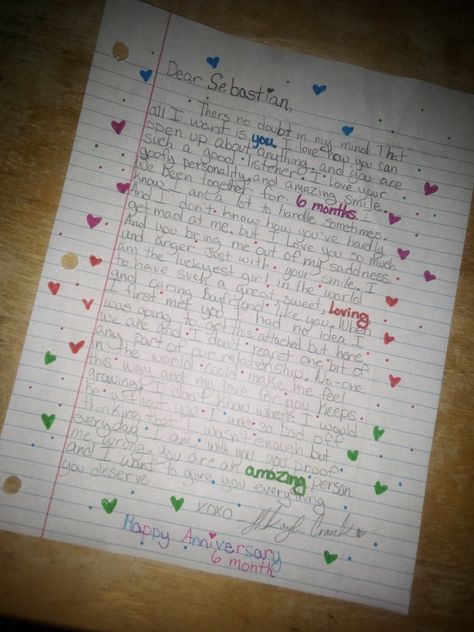 Dear Sebastian,
Thers no doubt in my mind That
all I want is you. I love how you can
open up about anything and you are
such a good listener. I love your
goofy personality, and amazing smile.
We been together for 6 months. I
know I am a lot to handle sometimes.
And I don't know how you've hardly
get mad at me. but I Love you so much
And you bring me out of my saddness
and anger Just with your smile. I
am the luckyest girl in the world
to have such a great, sweet, loving
and caring Boyfriend like you. When
I first met you I had no idea I
was going to get this attached but here
we are and I don't regret one bit of
any part of our relationship. No-one
in the world could make me feel
this way and my love for you keeps
growing. I don't know where I would
be without you. I was so bad off
thinking that I wasn't enough but
everyday I am with you you proof
me wrong. you are an amazing person
and I want to give you everything
you deserve.
XOXO
Happy Anniversary
6 month